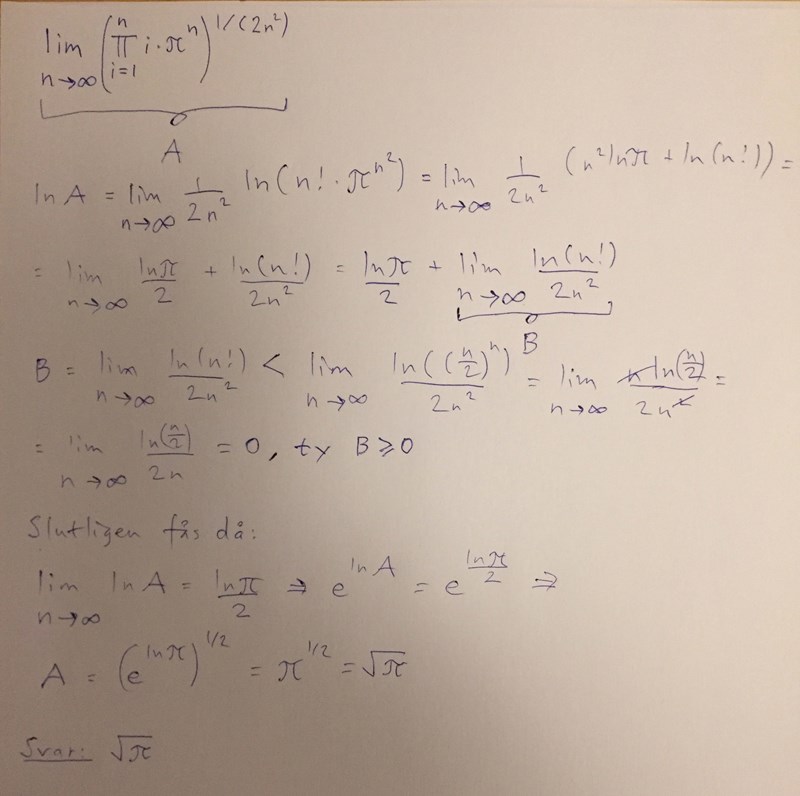 lim_{n→∞} (∏_{i=1}^{n} i·π^n)^{1/(2n²)}
A
ln A = lim_{n→∞} 1/(2n²) ln(n!·π^{n²}) = lim_{n→∞} 1/(2n²) (n² ln π + ln(n!)) =
= lim_{n→∞} ln π/2 + ln(n!)/(2n²) = ln π/2 + lim_{n→∞} ln(n!)/(2n²)
B
B = lim_{n→∞} ln(n!)/(2n²) < lim_{n→∞} ln((n/2)^n)/(2n²) = lim_{n→∞} n ln(n/2)/(2n²) =
= lim_{n→∞} ln(n/2)/(2n) = 0, ty B ⩾ 0
Slutligen fås då:
lim_{n→∞} ln A = ln π/2 ⇒ e^{ln A} = e^{ln π/2} ⇒
A = (e^{ln π})^{1/2} = π^{1/2} = √π
Svar: √π